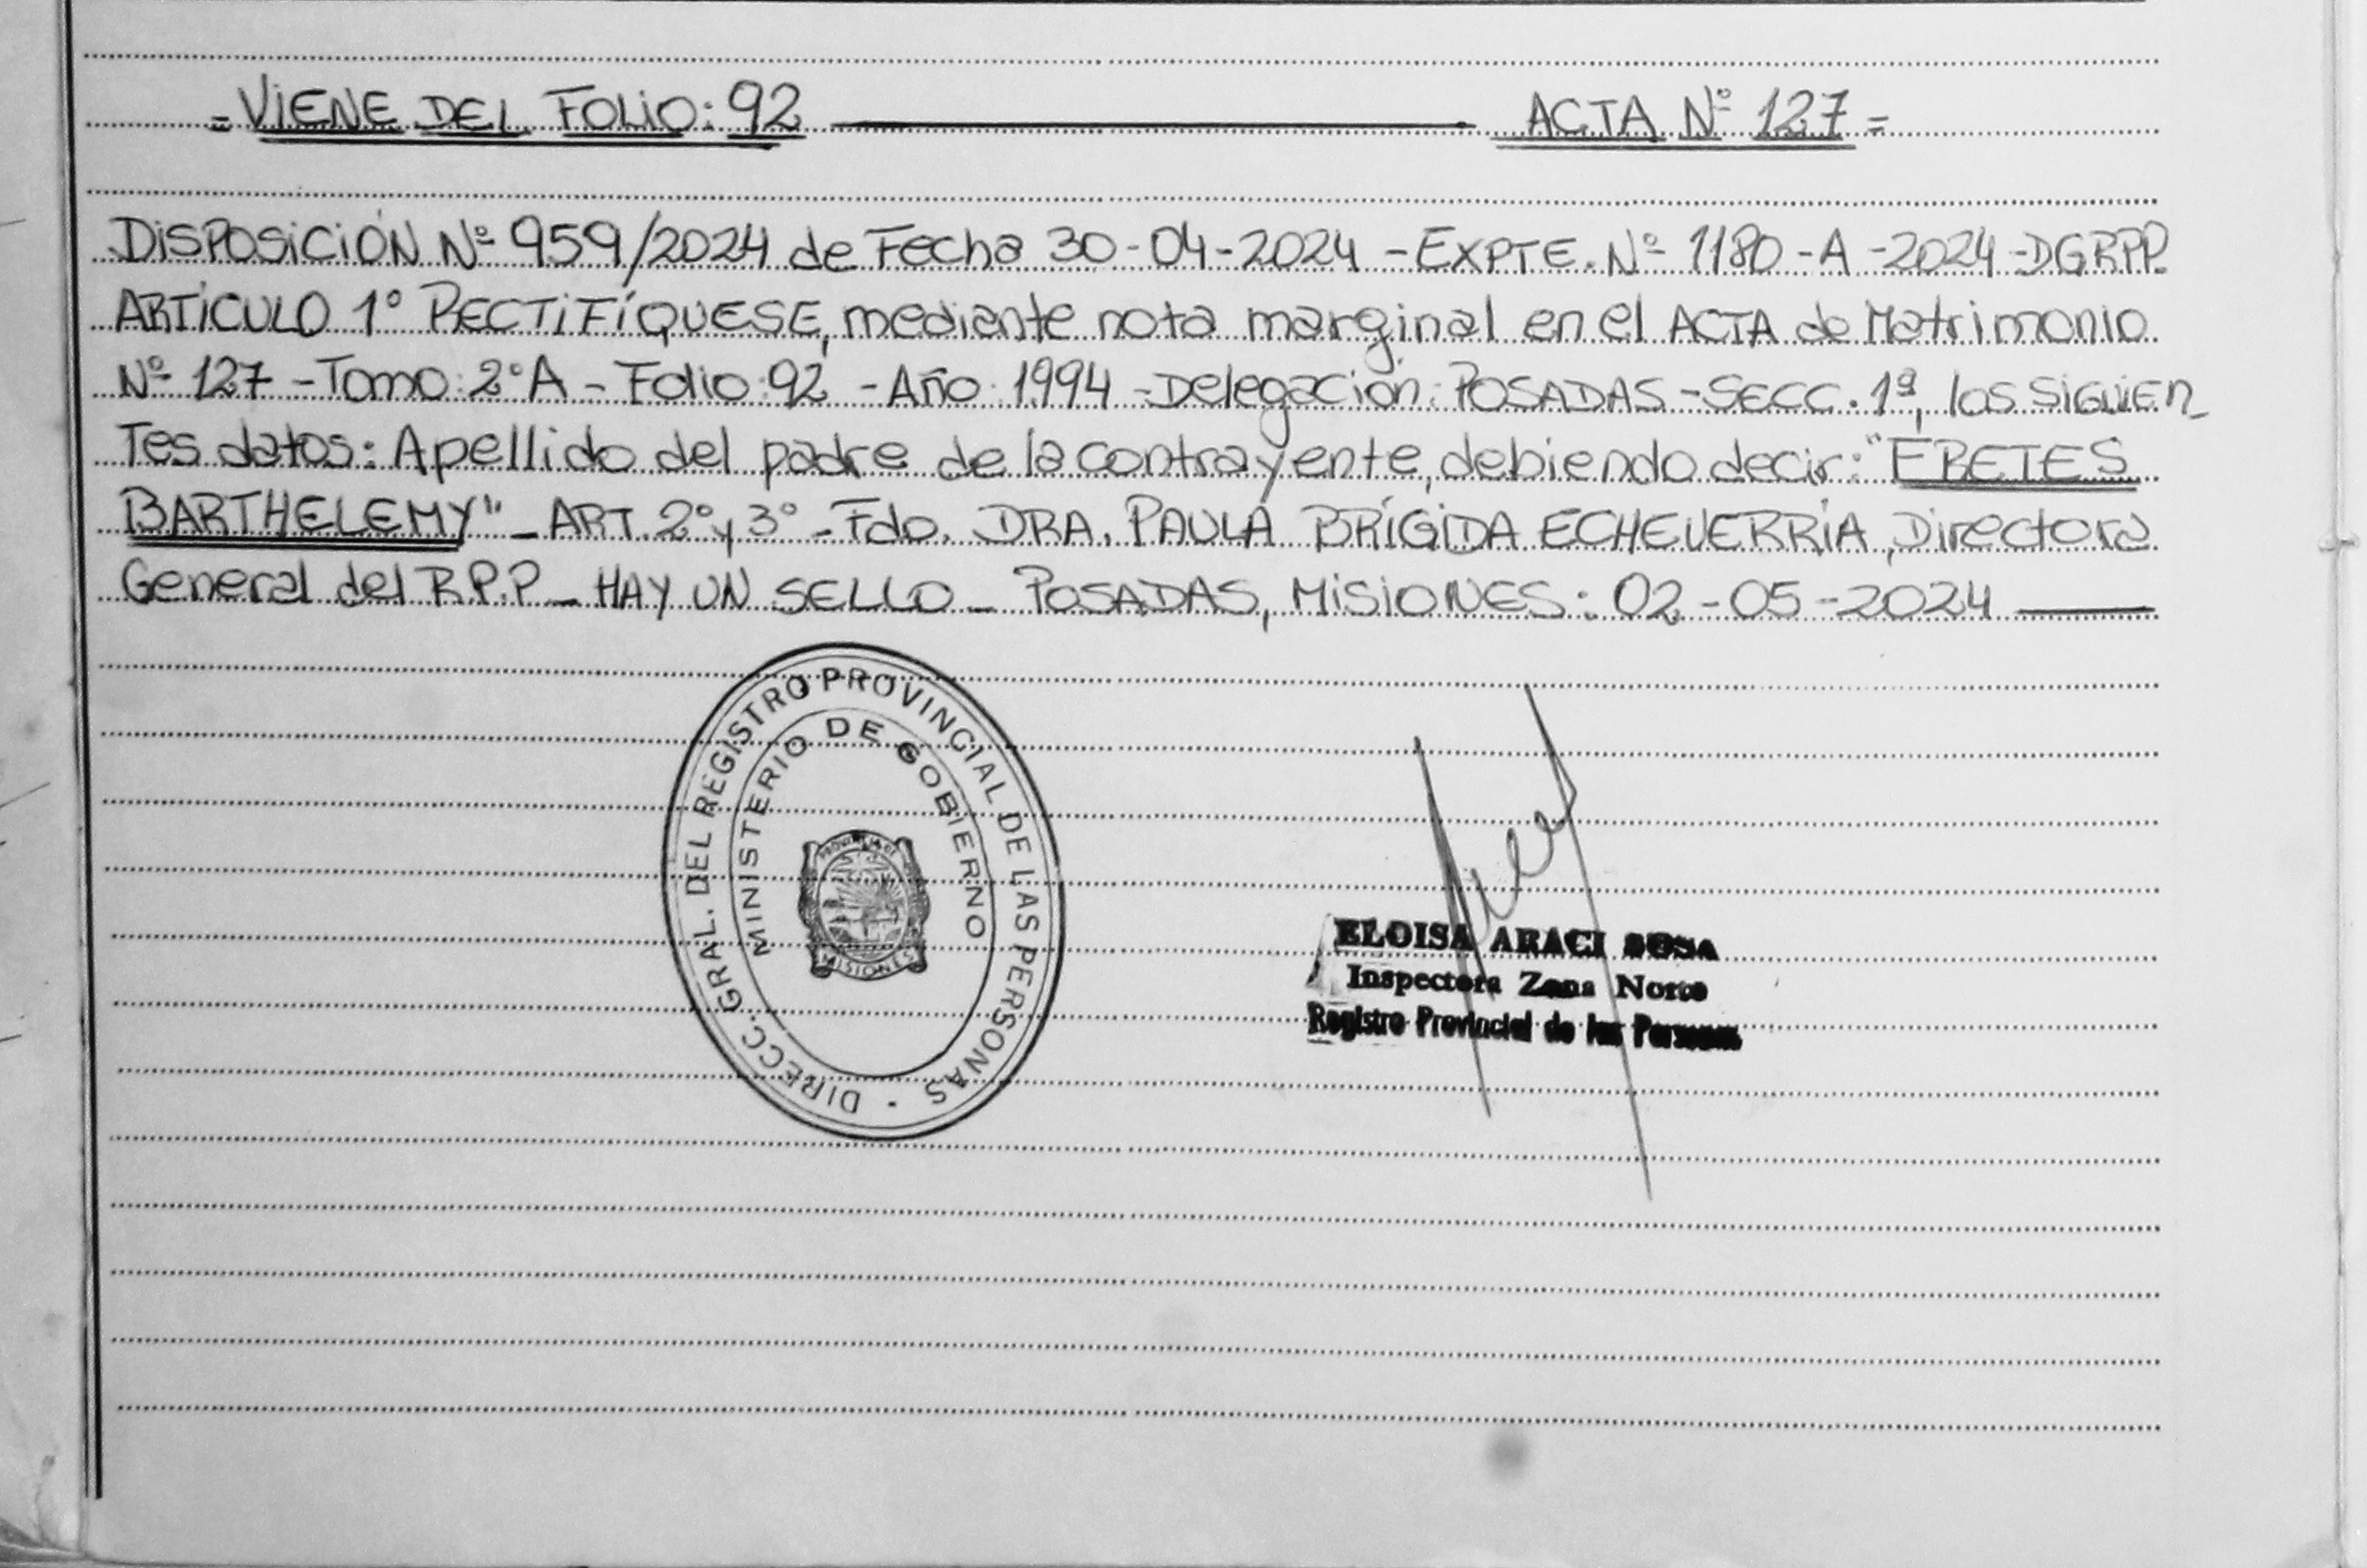 = VIENE DEL FOLIO: 92 ——— ACTA Nº 127 =
DISPOSICIÓN Nº 959/2024 de Fecha 30-04-2024 - EXPTE. Nº 1180-A-2024-DGRPP.
ARTÍCULO 1° RECTIFÍQUESE, mediante nota marginal en el ACTA de Matrimonio
Nº 127 - Tomo: 2°A - Folio: 92 - Año: 1994 - Delegación: POSADAS - SECC. 1ª, los SIGUIEN_
Tes datos: Apellido del padre de la contrayente, debiendo decir: "EBETES
BARTHELEMY" _ ART. 2° y 3° - Fdo. DRA. PAULA BRÍGIDA ECHEVERRÍA, Directora
General del R.P.P _ HAY UN SELLO _ POSADAS, MISIONES: 02-05-2024 ———
DIRECC. GRAL. DEL REGISTRO PROVINCIAL DE LAS PERSONAS
MINISTERIO DE GOBIERNO
PROVINCIA DE
MISIONES
ELOISA ARACI SOSA
Inspectora Zona Norte
Registro Provincial de las Personas